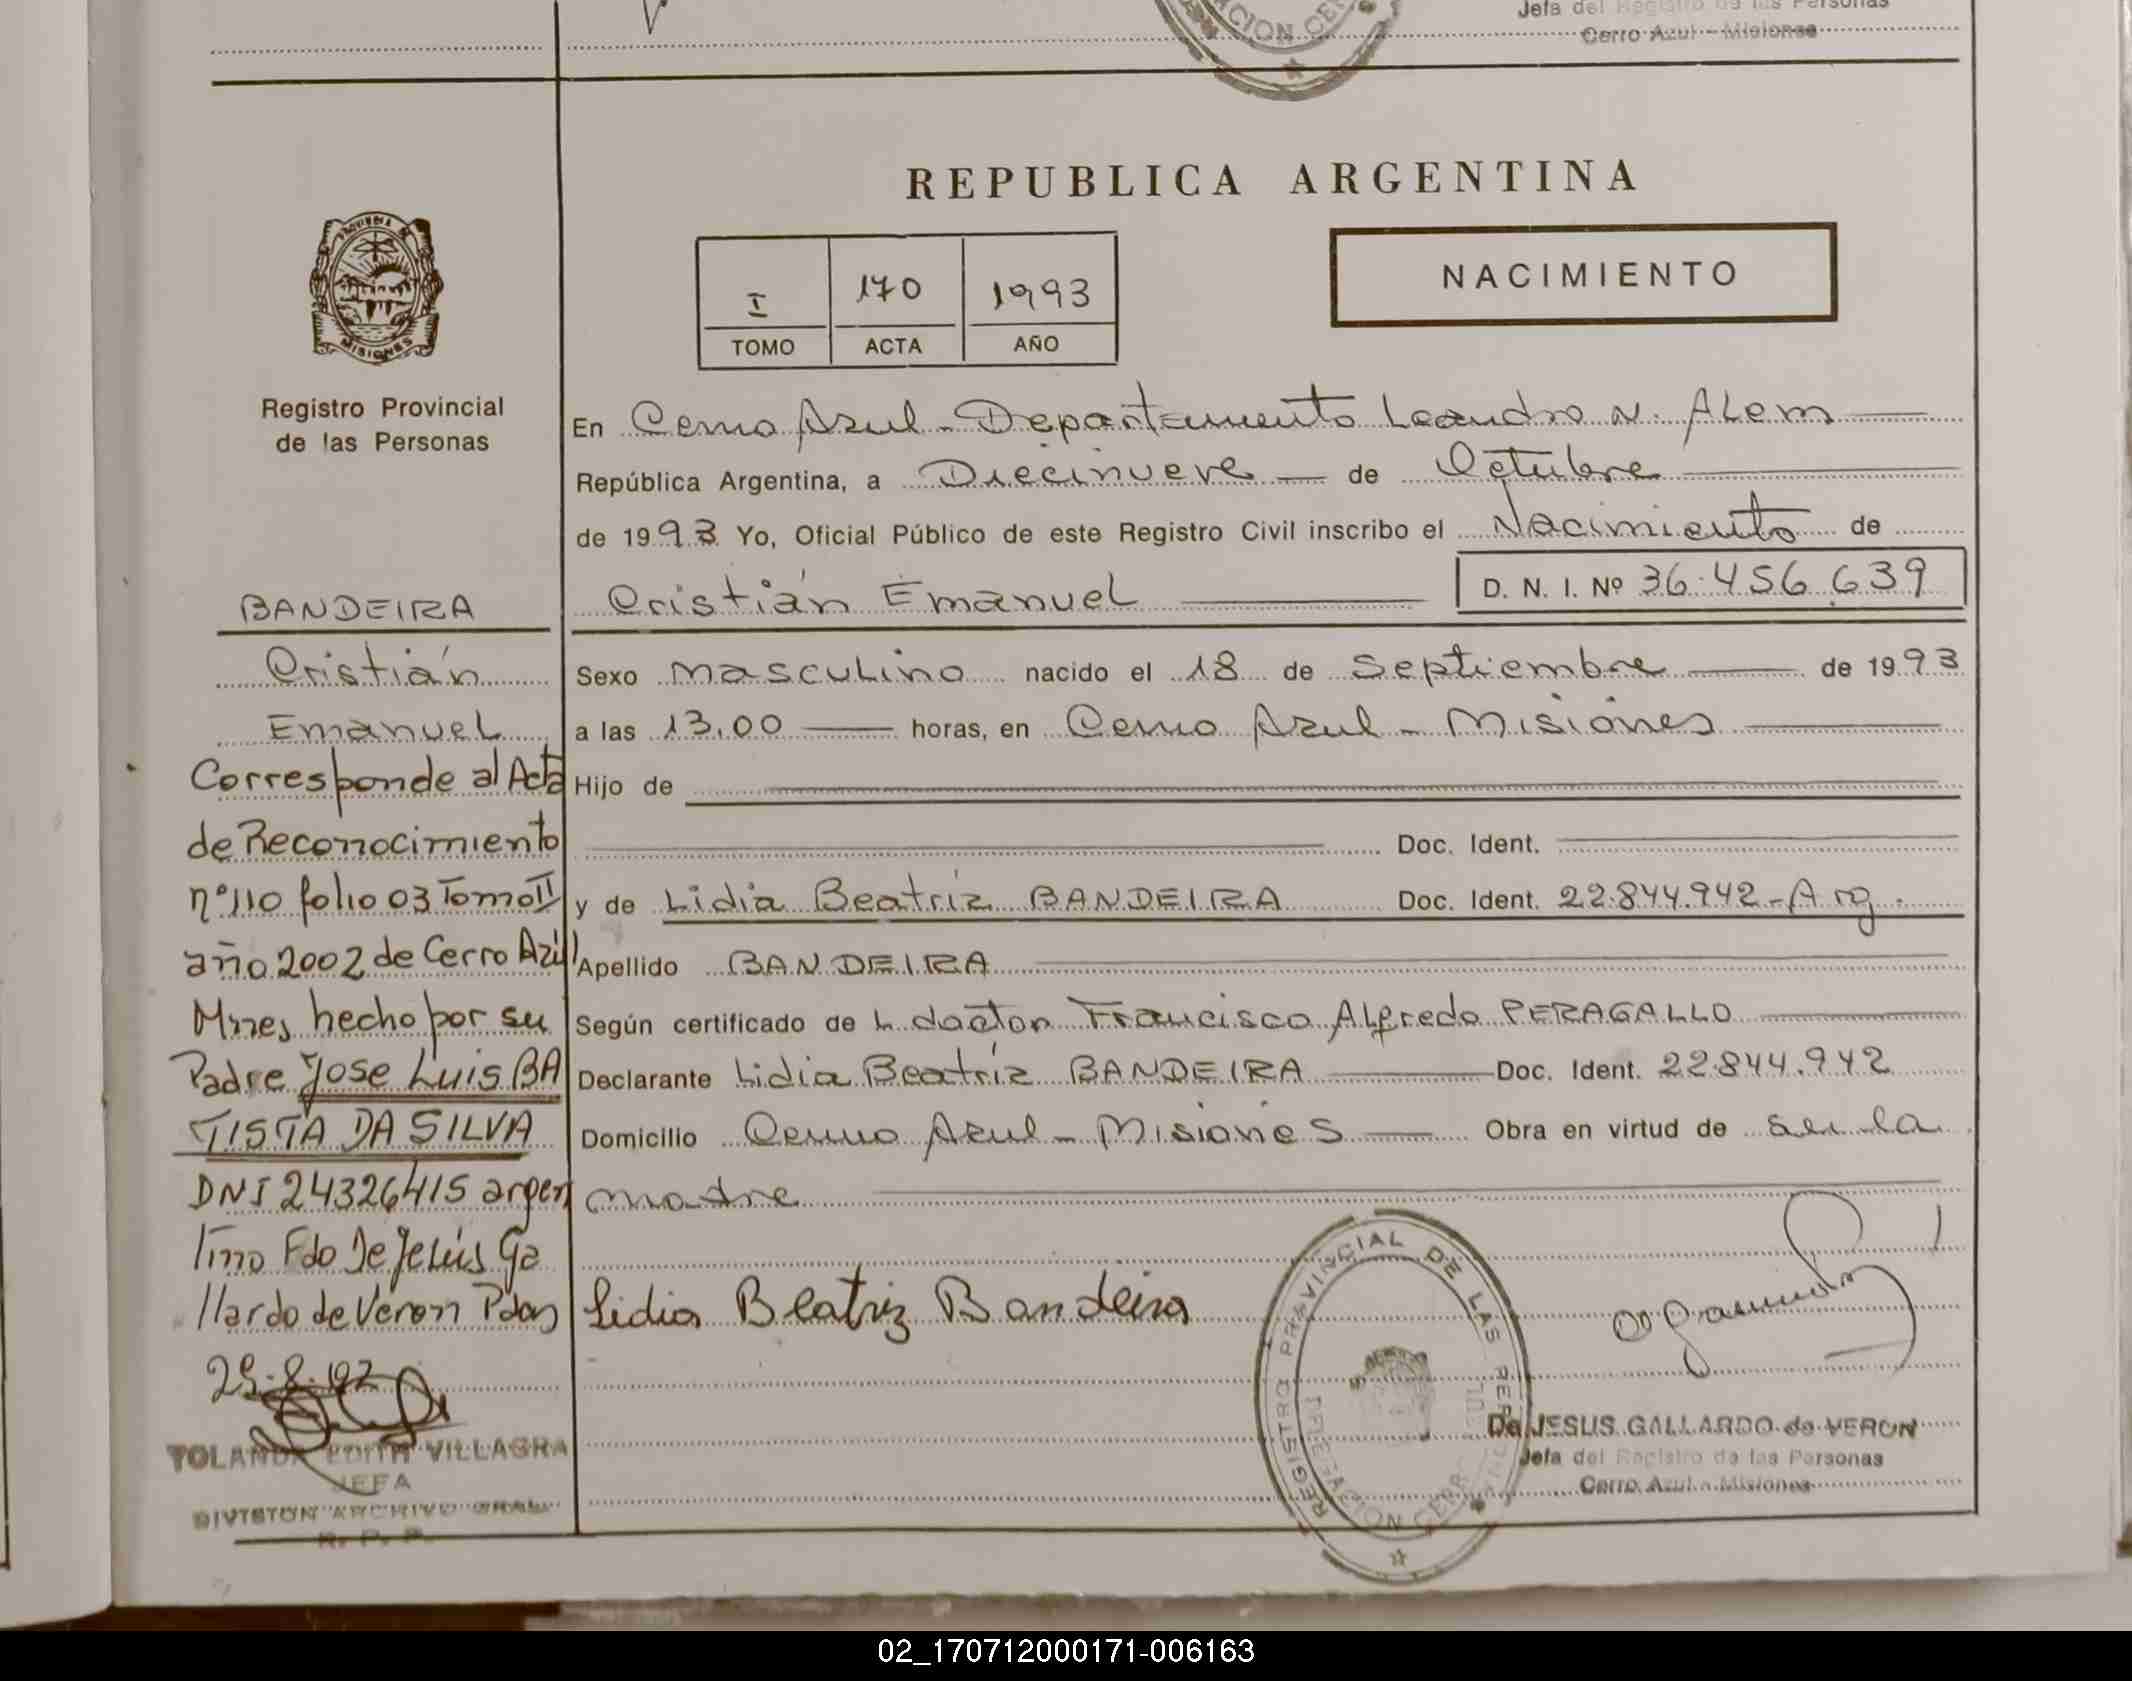 V
CION CE
Jefa del Registro de las Personas
Cerro Azul - Misiones
REPUBLICA ARGENTINA
PROVINCIA
MISIONES
Registro Provincial
de las Personas
I 170 1993
TOMO ACTA AÑO
NACIMIENTO
En Cerro Azul - Departamento Leandro N. ALem
República Argentina, a Diecinueve de Octubre
de 1993 Yo, Oficial Público de este Registro Civil inscribo el Nacimiento de
Cristián Emanuel D. N. I. Nº 36.456.639
Sexo masculino nacido el 18 de Septiembre de 1993
a las 13,00 horas, en Cerro Azul - Misiones
Hijo de
Doc. Ident.
y de Lidia Beatriz BANDEIRA Doc. Ident. 22.844.942 - Arg.
Apellido BANDEIRA
Según certificado del doctor Francisco Alfredo PERAGALLO
Declarante Lidia Beatriz BANDEIRA Doc. Ident. 22.844.942
Domicilio Cerro Azul - Misiones Obra en virtud de ser la
madre
Lidia Beatriz Bandeira
REGISTRO PROVINCIAL DE LAS PER
De JESUS GALLARDO de VERON
Jefa del Registro de las Personas
Cerro Azul - Misiones
BANDEIRA
Cristián
Emanuel
Corresponde al Acta
de Reconocimiento
nº 110 folio 03 Tomo II
año 2002 de Cerro Azul
Mnes hecho por su
Padre Jose Luis BA
TISTA DA SILVA
DNI 24326415 argen
tino Fdo De Jesús Ga
llardo de Veron Pdas
YOLANDA EDITH VILLAGRA
JEFA
DIVISION ARCHIVO GRAL.
R. P. P.
02_170712000171-006163